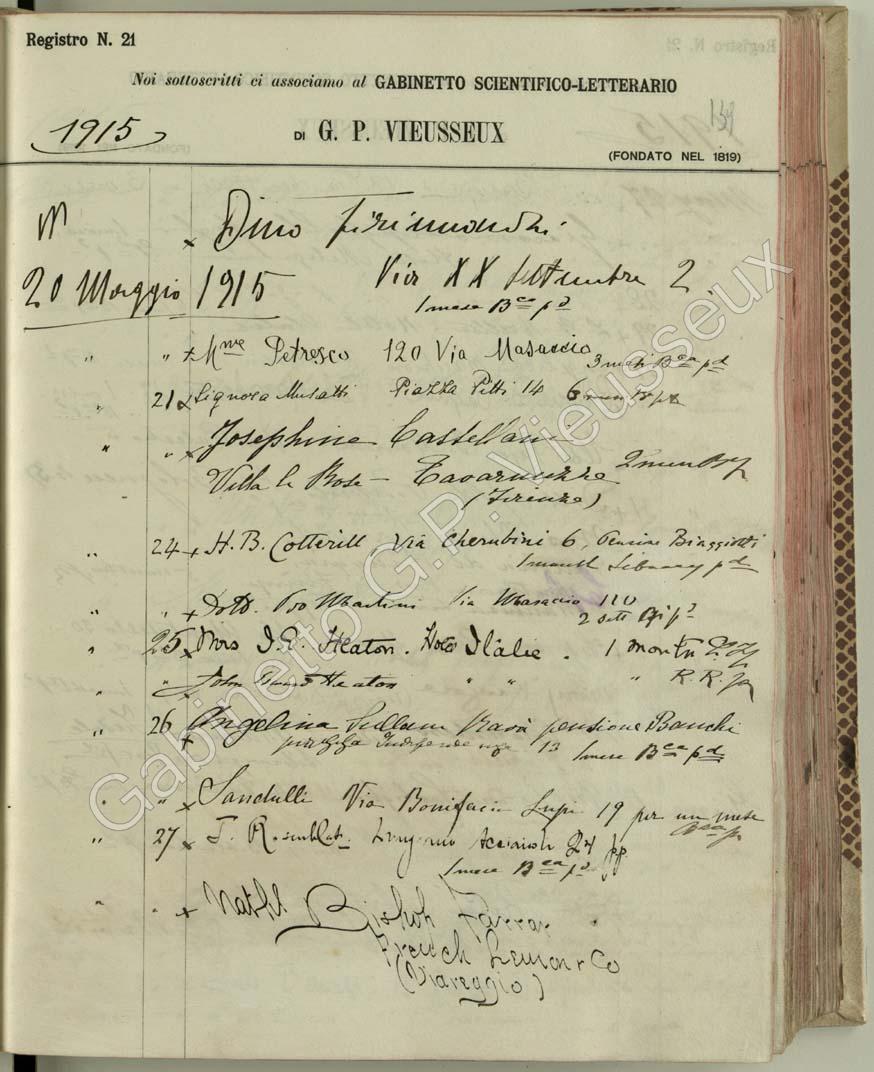 Registro N. 21
Noi sottoscritti ci associamo al GABINETTO SCIENTIFICO-LETTERARIO
139
1915
DI G. P. VIEUSSEUX
(FONDATO NEL 1819)
x Dino
20 Maggio 1915 Via XX Settembre 2.
1 mese Bca pd
" " x Mme Petresco 120 Via Masaccio 3 mesi Bca pd
" 21 x Signora Musatti Piazza Pitti 14 6
" " x Josephine Castellani
Villa le Rose – Tavarnuzze 2
(Firenze)
" 24 x H. B. Cotterill, Via Cherubini 6, Pensione Biaggiotti
1 month Library pd
" " x Dott. Martini Via Masaccio 110
2 sett
" 25 x Mrs I. E. Heaton. Hotel Italie. 1 month
" " x John Heaton " " " R. R.
" 26 x Angelina Sullam Ravà pensione Banchi
piazza Indipendenza 13 1 mese Bca pd
" " x Sandulli Via Bonifacio Lupi 19 per un mese
Bca pd
" 27 x Lungarno Acciaioli 24
1 mese Bca pd
" " x Nathl Bishop Farrar
French Lemon & Co
(Viareggio)
Gabinetto G.P. Vieusseux